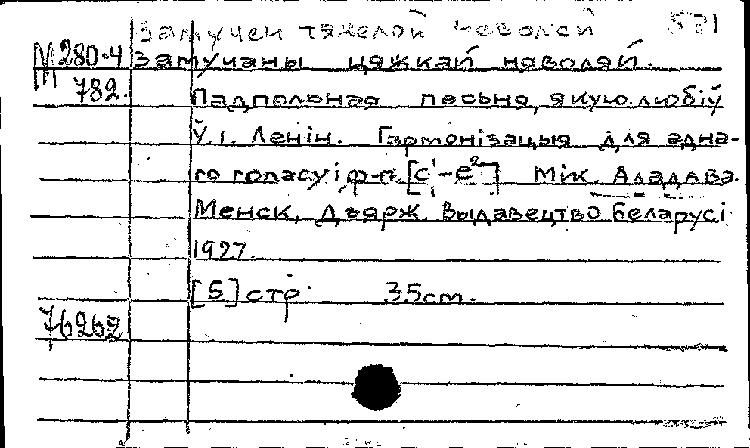 Замучен тяжелой неволей 531
М280-4 Замучаны цяжкай няволяй.
М 782. Падпольная песьня, якую любіў
Ў. І. Ленін. Гармонізацыя для адна-
го голасу і ф-п. [c¹-e²] Мік. Аладава.
Менск, Дзярж. Выдавецтво Беларусі
1927.
[5] стр. 35cm.
76262